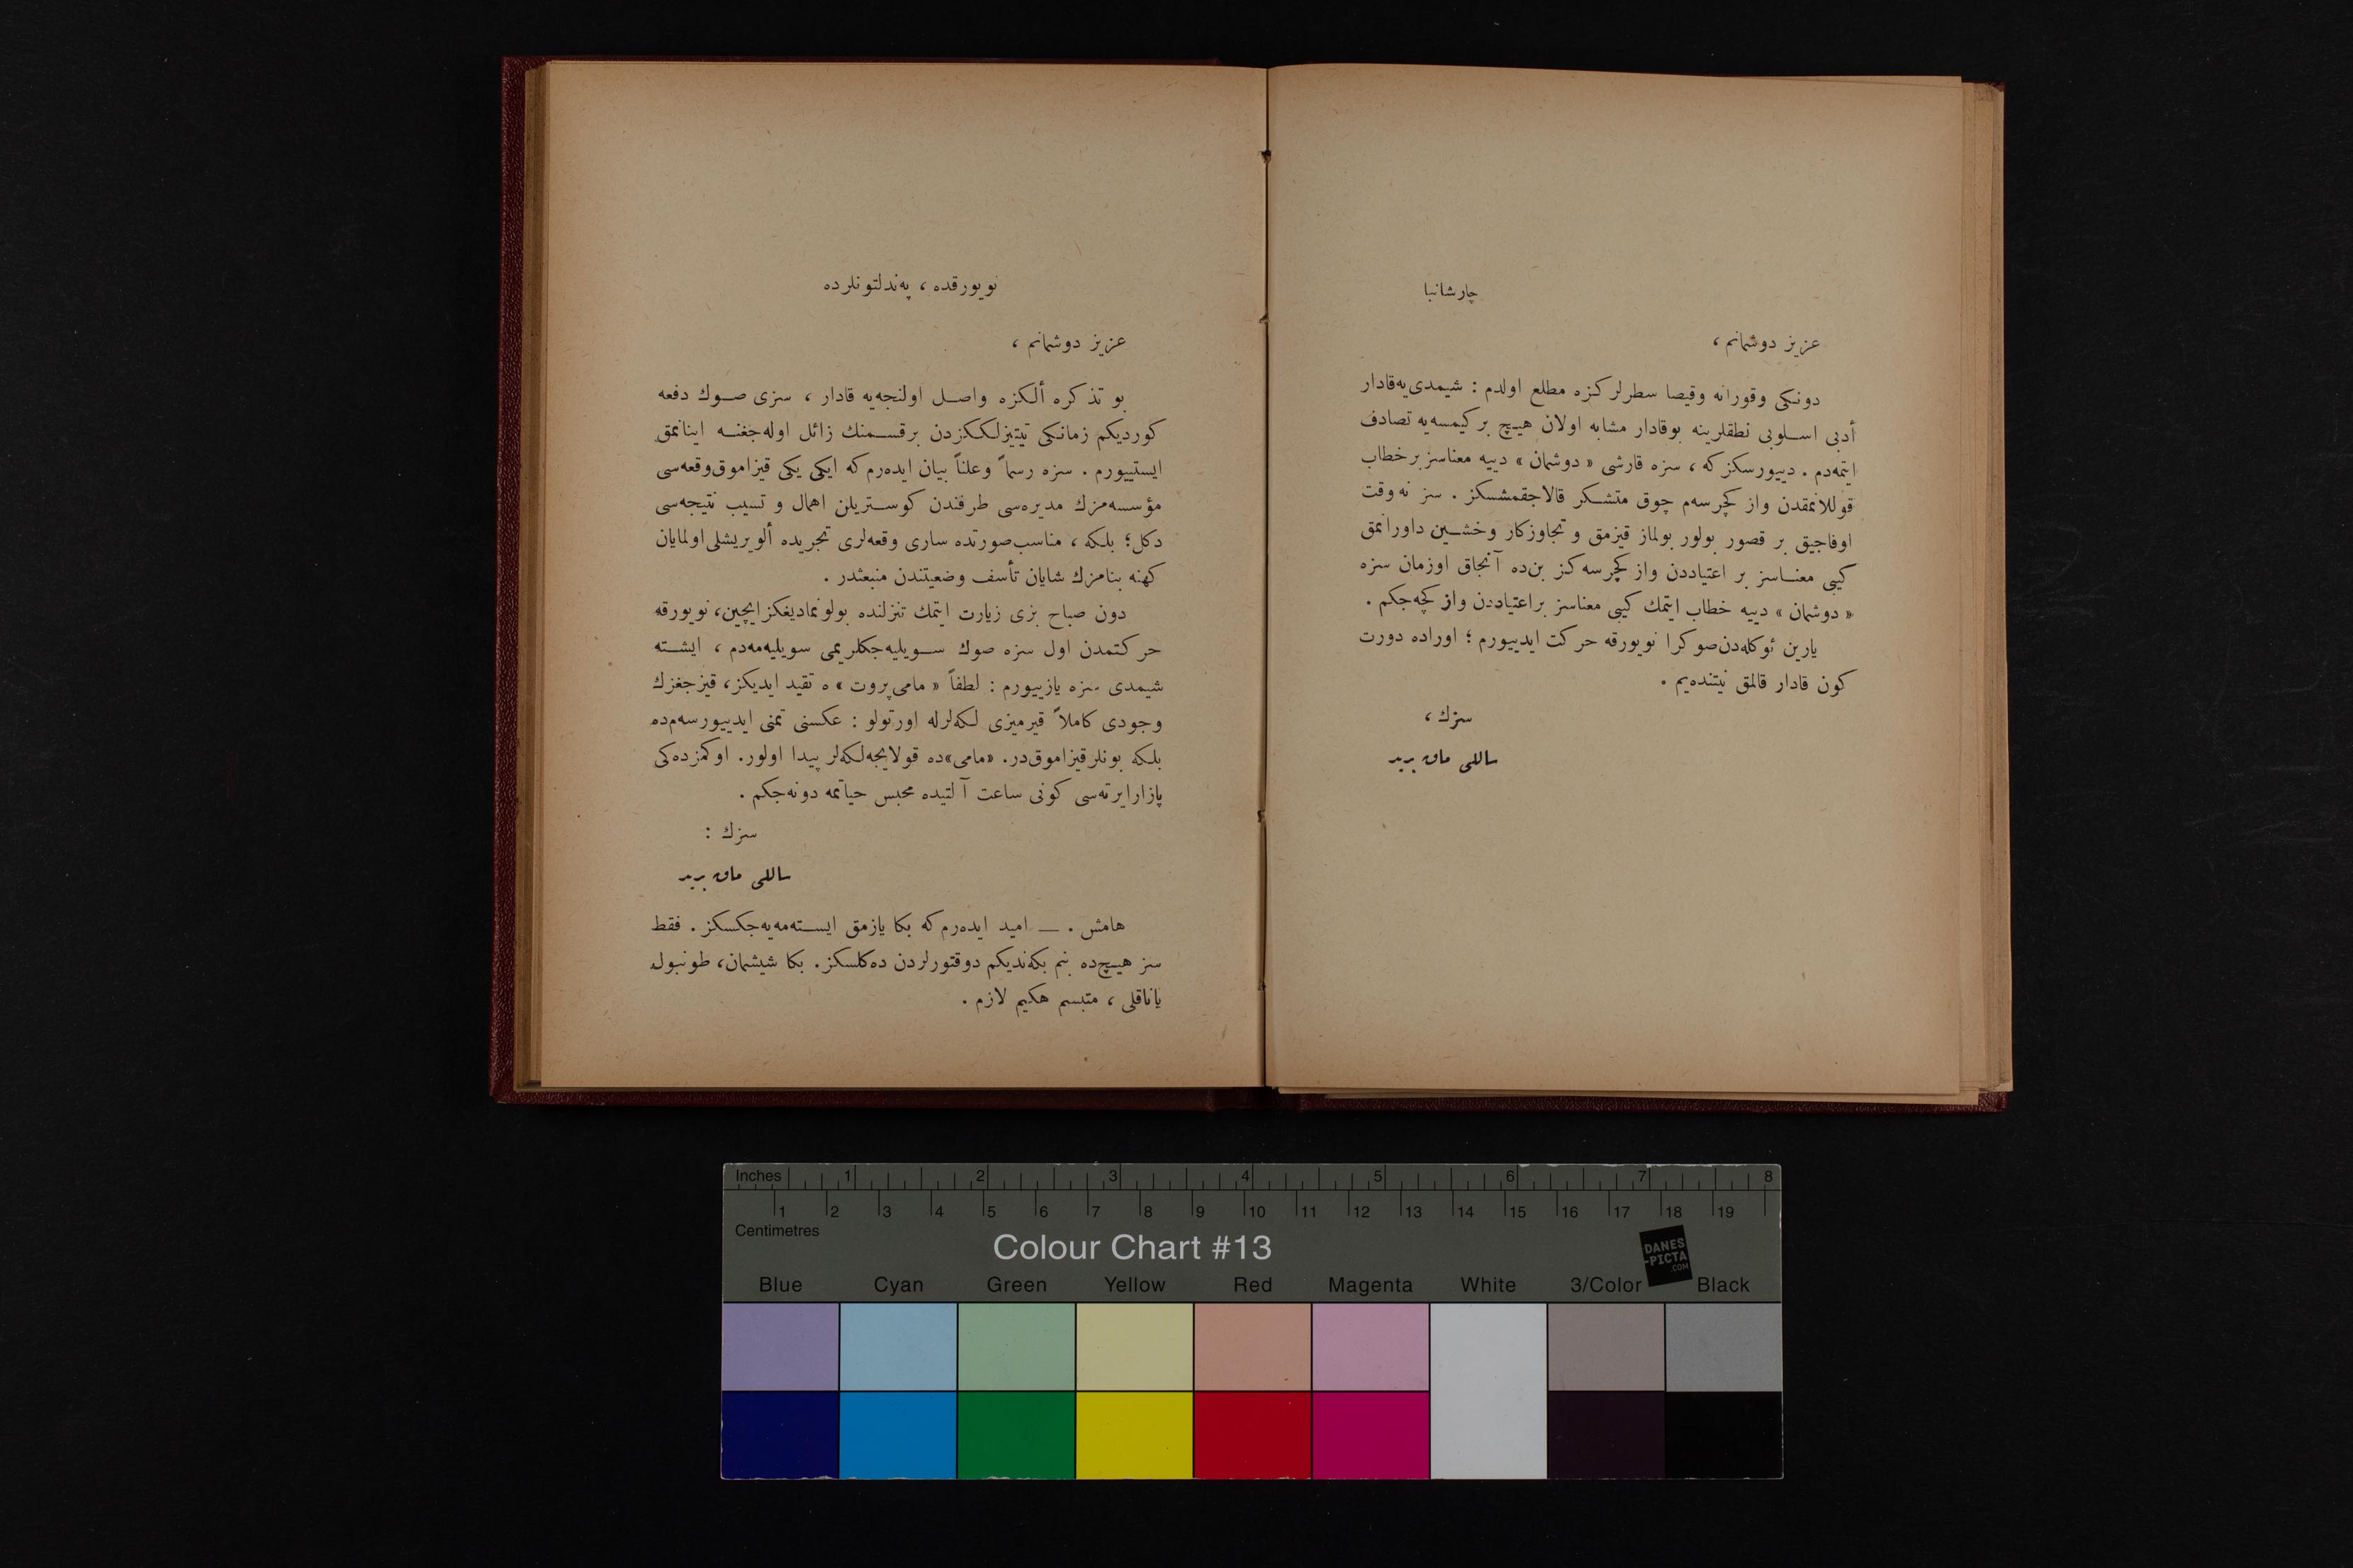 چارشانبا
عزیز دوشمانم ،
دونکی وقورانه وقیصا سطرلرکزه مطلع اولدم : شیمدی‌یه‌قادار
أدبی اسلوبی نطقلرینه بوقادار مشابه اولان هیچ بر کیمسه‌یه تصادف
ایتمه‌دم . دییورسکز که ، سزه قارشی « دوشمان » دییه معناسز بر خطاب
قوللانمقدن واز کچرسه‌م چوق متشکر قالاجقمشسکز . سز نه وقت
اوفاجیق بر قصور بولور بولماز قیزمق و تجاوزکار وخشین داورانمق
کیبی معناسز بر اعتیاددن واز کچرسه کز بن‌ده آنجاق اوزمان سزه
« دوشمان » دییه خطاب ایتمك کیبی معناسز براعتیاددن واز کچه‌جکم .
یارین ئوکله‌دن‌صوکرا نویورقه حرکت ایدییورم ؛ اوراده دورت
کون قادار قالمق نیتنده‌یم .
سزك ،
ساللی ماق برید
نویورقده ، په‌ندلتونلرده
عزیز دوشمانم ،
بو تذکره ألکزه واصل اولنجه‌یه قادار ، سزی صوك دفعه
کوردیکم زمانکی تیتیزلککزدن برقسمنك زائل اوله‌جغنه اینانمق
ایستییورم . سزه رسماً وعلناً بیان ایده‌رم که ایکی یکی قیزاموق‌وقعه‌سی
مؤسسه‌مزك مدیره‌سی طرفندن کوستریلن اهمال و تسیب نتیجه‌سی
دکل؛ بلکه ، مناسب‌صورتده ساری وقعه‌لری تجریده ألویریشلی‌اولمایان
کهنه بنامزك شایان تأسف وضعیتندن منبعثدر .
دون صباح بزی زیارت ایتمك تنزلنده بولونمادیغکزایچین، نویورقه
حرکتمدن اول سزه صوك سویلیه‌جکلریمی سویلیه‌مه‌دم ، ایشته
شیمدی سزه یازییورم : لطفاً « مامی‌پروت » ه تقید ایدیکز، قیزجغزك
وجودی کاملاً قیرمیزی لکه‌لرله اورتولو : عکسنی تمنی ایدییورسه‌م‌ده
بلکه بونلرقیزاموق‌در. «مامی»ده قولایجه‌لکه‌لر پیدا اولور. اوکمزده‌کی
پازارایرته‌سی کونی ساعت آلتیده محبس حیاتمه دونه‌جکم .
سزك :
ساللی ماق برید
هامش . — امید ایده‌رم که بکا یازمق ایسته‌مه‌یه‌جکسکز . فقط
سز هیچ‌ده بنم بکه‌ندیکم دوقتورلردن ده‌کلسکز. بکا شیشمان، طونبول
یاناقلی ، متبسم هکیم لازم .
Inches 1 2 3 4 5 6 7 8
1 2 3 4 5 6 7 8 9 10 11 12 13 14 15 16 17 18 19
Centimetres
Colour Chart #13
DANES
-PICTA
.COM
Blue Cyan Green Yellow Red Magenta White 3/Color Black